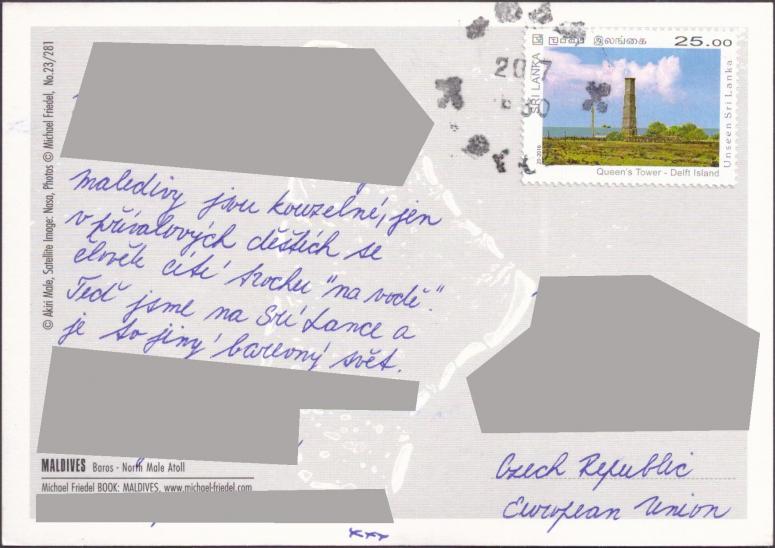 © Akiri Male, Satellite Image: Nasa, Photos © Michael Friedel, No.23/281
maledivy jsou kouzelné, jen
v přívalových deštích se
člověk cítí trochu "na vodě".
Teď jsme na Srí Lance a
je to jiný barevný svět.
MALDIVES Baros - North Male Atoll
Michael Friedel BOOK: MALDIVES, www.michael-friedel.com
xxx
20
30
ශ්‍රී ලංකා இலங்கை 25.00
SRI LANKA
Unseen Sri Lanka
Queen's Tower - Delft Island
Czech Republic
European Union